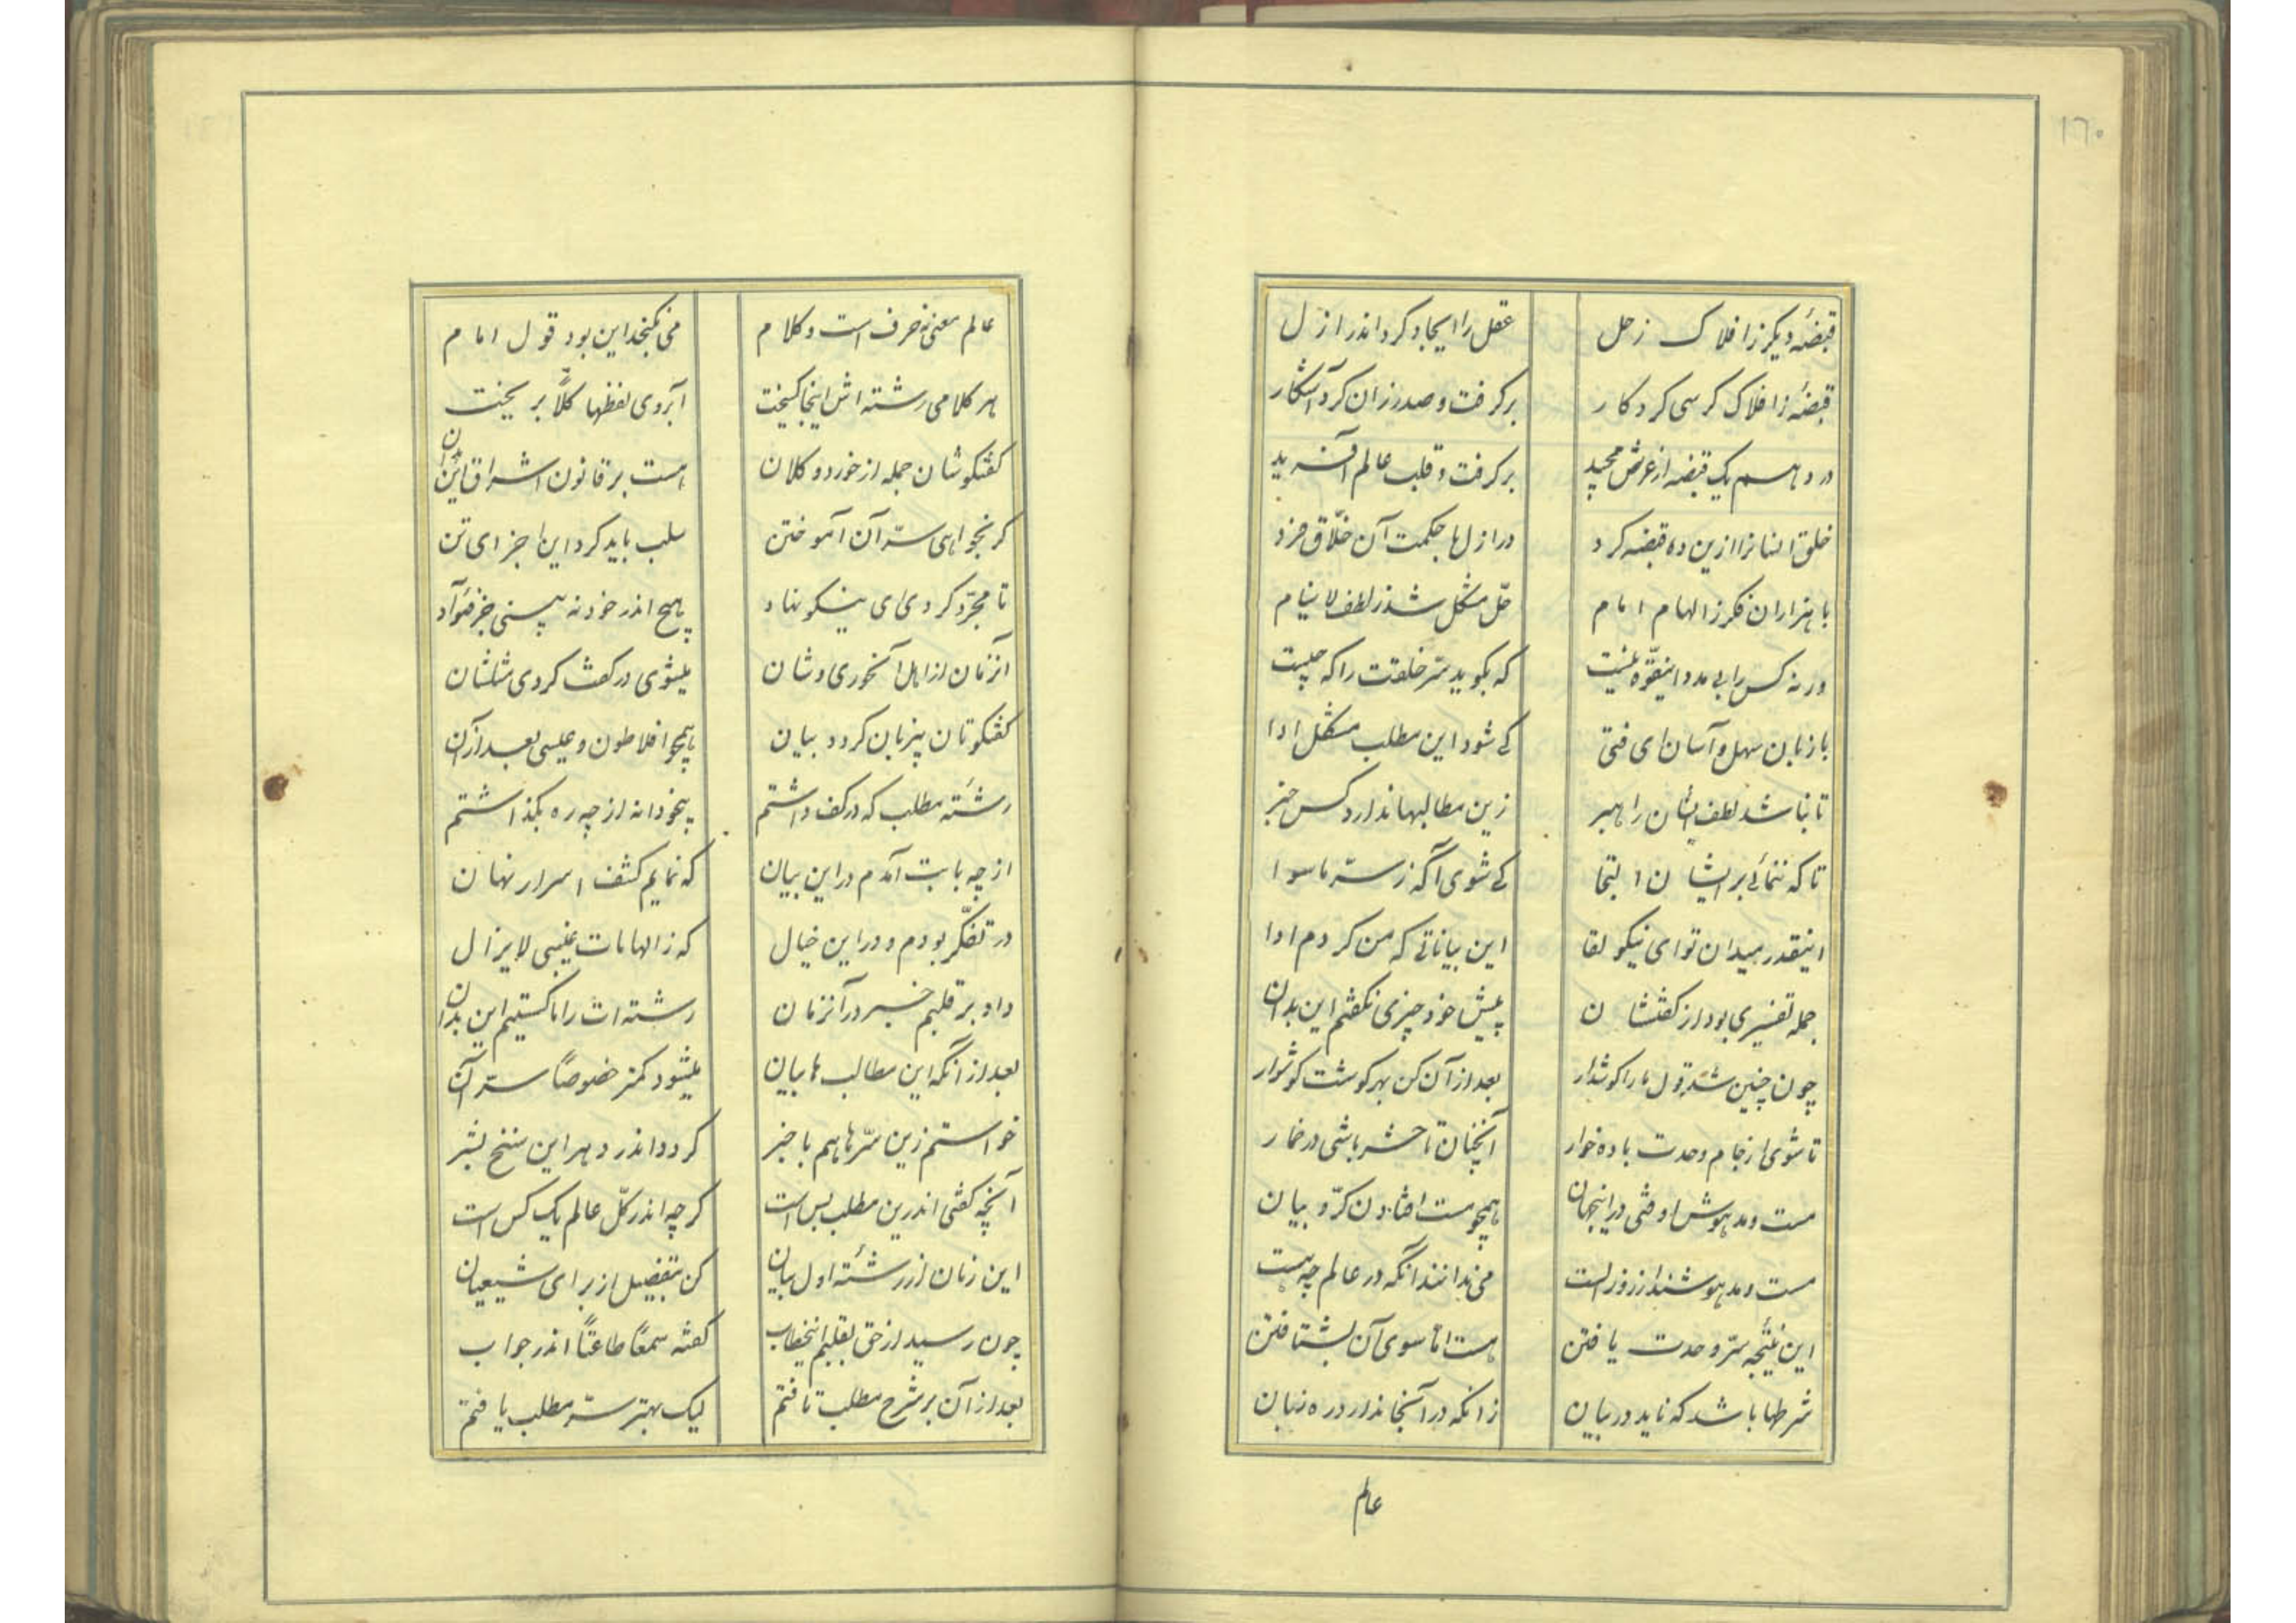 ۱٦۰
قبضهٔ دیگر ز افلاک زحل	عقل را ایجاد کرد اندر ازل
قبضهٔ ز افلاک کرسی کردکار	برگرفت و صدر زان کرد آشکار
در دهم یک قبضه از عرش مجید	برگرفت و قلب عالم آفرید
خلق انسانرا ازین ده قبضه کرد	در ازلها حکمت آن خلّاق فرد
با هزاران فکر ز الهام امام	حلّ مشکل شد ز لطف لاینام
ورنه کس را بی مدد اینقوّه نیست	که بگوید سرّ خلقت را که چیست
با زبان سهل و آسان ای فتی	کے شود این مطلب مشکل ادا
تا نباشد لطف ایشان راهبر	زین مطالبها ندارد کس خبر
تا که ننمائے بر ایشان التجا	کے شوی آگه ز سرّ ماسوا
اینقدر میدان تو ای نیکو لقا	این بیاناتے که من کردم ادا
جمله تفسیری بود از گفتشان	پیش خود چیزی نگفتم این بدان
چون چنین شد قول ما را گوشدار	بعد از آن کن بهر گوشت گوشوار
تا شوی از جام وحدت باده خوار	آنچنان تا حشر باشی در خمار
مست و مدهوش اوفتی در اینجهان	همچو مست افتادن کرّوبیان
مست و مدهوشند از روز الست	می ندانند آنکه در عالم چه هست
این نتیجه سرّ وحدت یافتن	هست اتا سوی آن بشتافتن
شرطها باشد که ناید در بیان	زانکه در آنجا ندارد ره زبان
عالم
عالم معنی نه حرف است و کلام	می نگنجد این بود قول امام
هر کلامی رشته اش اینجا گسیخت	آبروی لفظها کلّاً بریخت
گفتگوشان جمله از خورد و کلان	هست بر قانون اشراق این بدان
گر بخواهی سرّ آن آموختن	سلب باید کرد این اجزای تن
تا مجرّد گردی ای نیکو نهاد	هیچ اندر خود نه بینی جز فؤآد
آنزمان از اهل آنخوری و شان	میشوی در کعث گردی مثلشان
گفتگوتان پنزبان گردد بیان	همچو افلاطون و عیسی بعد از آن
رشتهٔ مطلب که در کف داشتم	بیخودانه از چه ره بگذاشتم
از چه بابت آمدم در این بیان	که نمایم کشف اسرار نهان
در تفکّر بودم و در این خیال	که ز الهامات غیبی لایزال
داد بر قلبم خبر در آنزمان	رشته ات را ما گستیم این بدان
بعد از آنکه این مطالبها بیان	میشود کمتر خصوصاً سرّ آن
خواستم زین سرّها هم با خبر	گردد اندر دهر این سنخ بشر
آنچه گفتی اندرین مطلب بس است	گرچه اندر کلّ عالم یک کس است
این زمان از رشتهٔ اول بیان	کن بتفضیل از برای شیعیان
چون رسید از حق بقلبم اینخطاب	گفته سمعاً طاعتاً اندر جواب
بعد از آن بر شرح مطلب تافتم	لیک بهتر سرّ مطلب یافتم